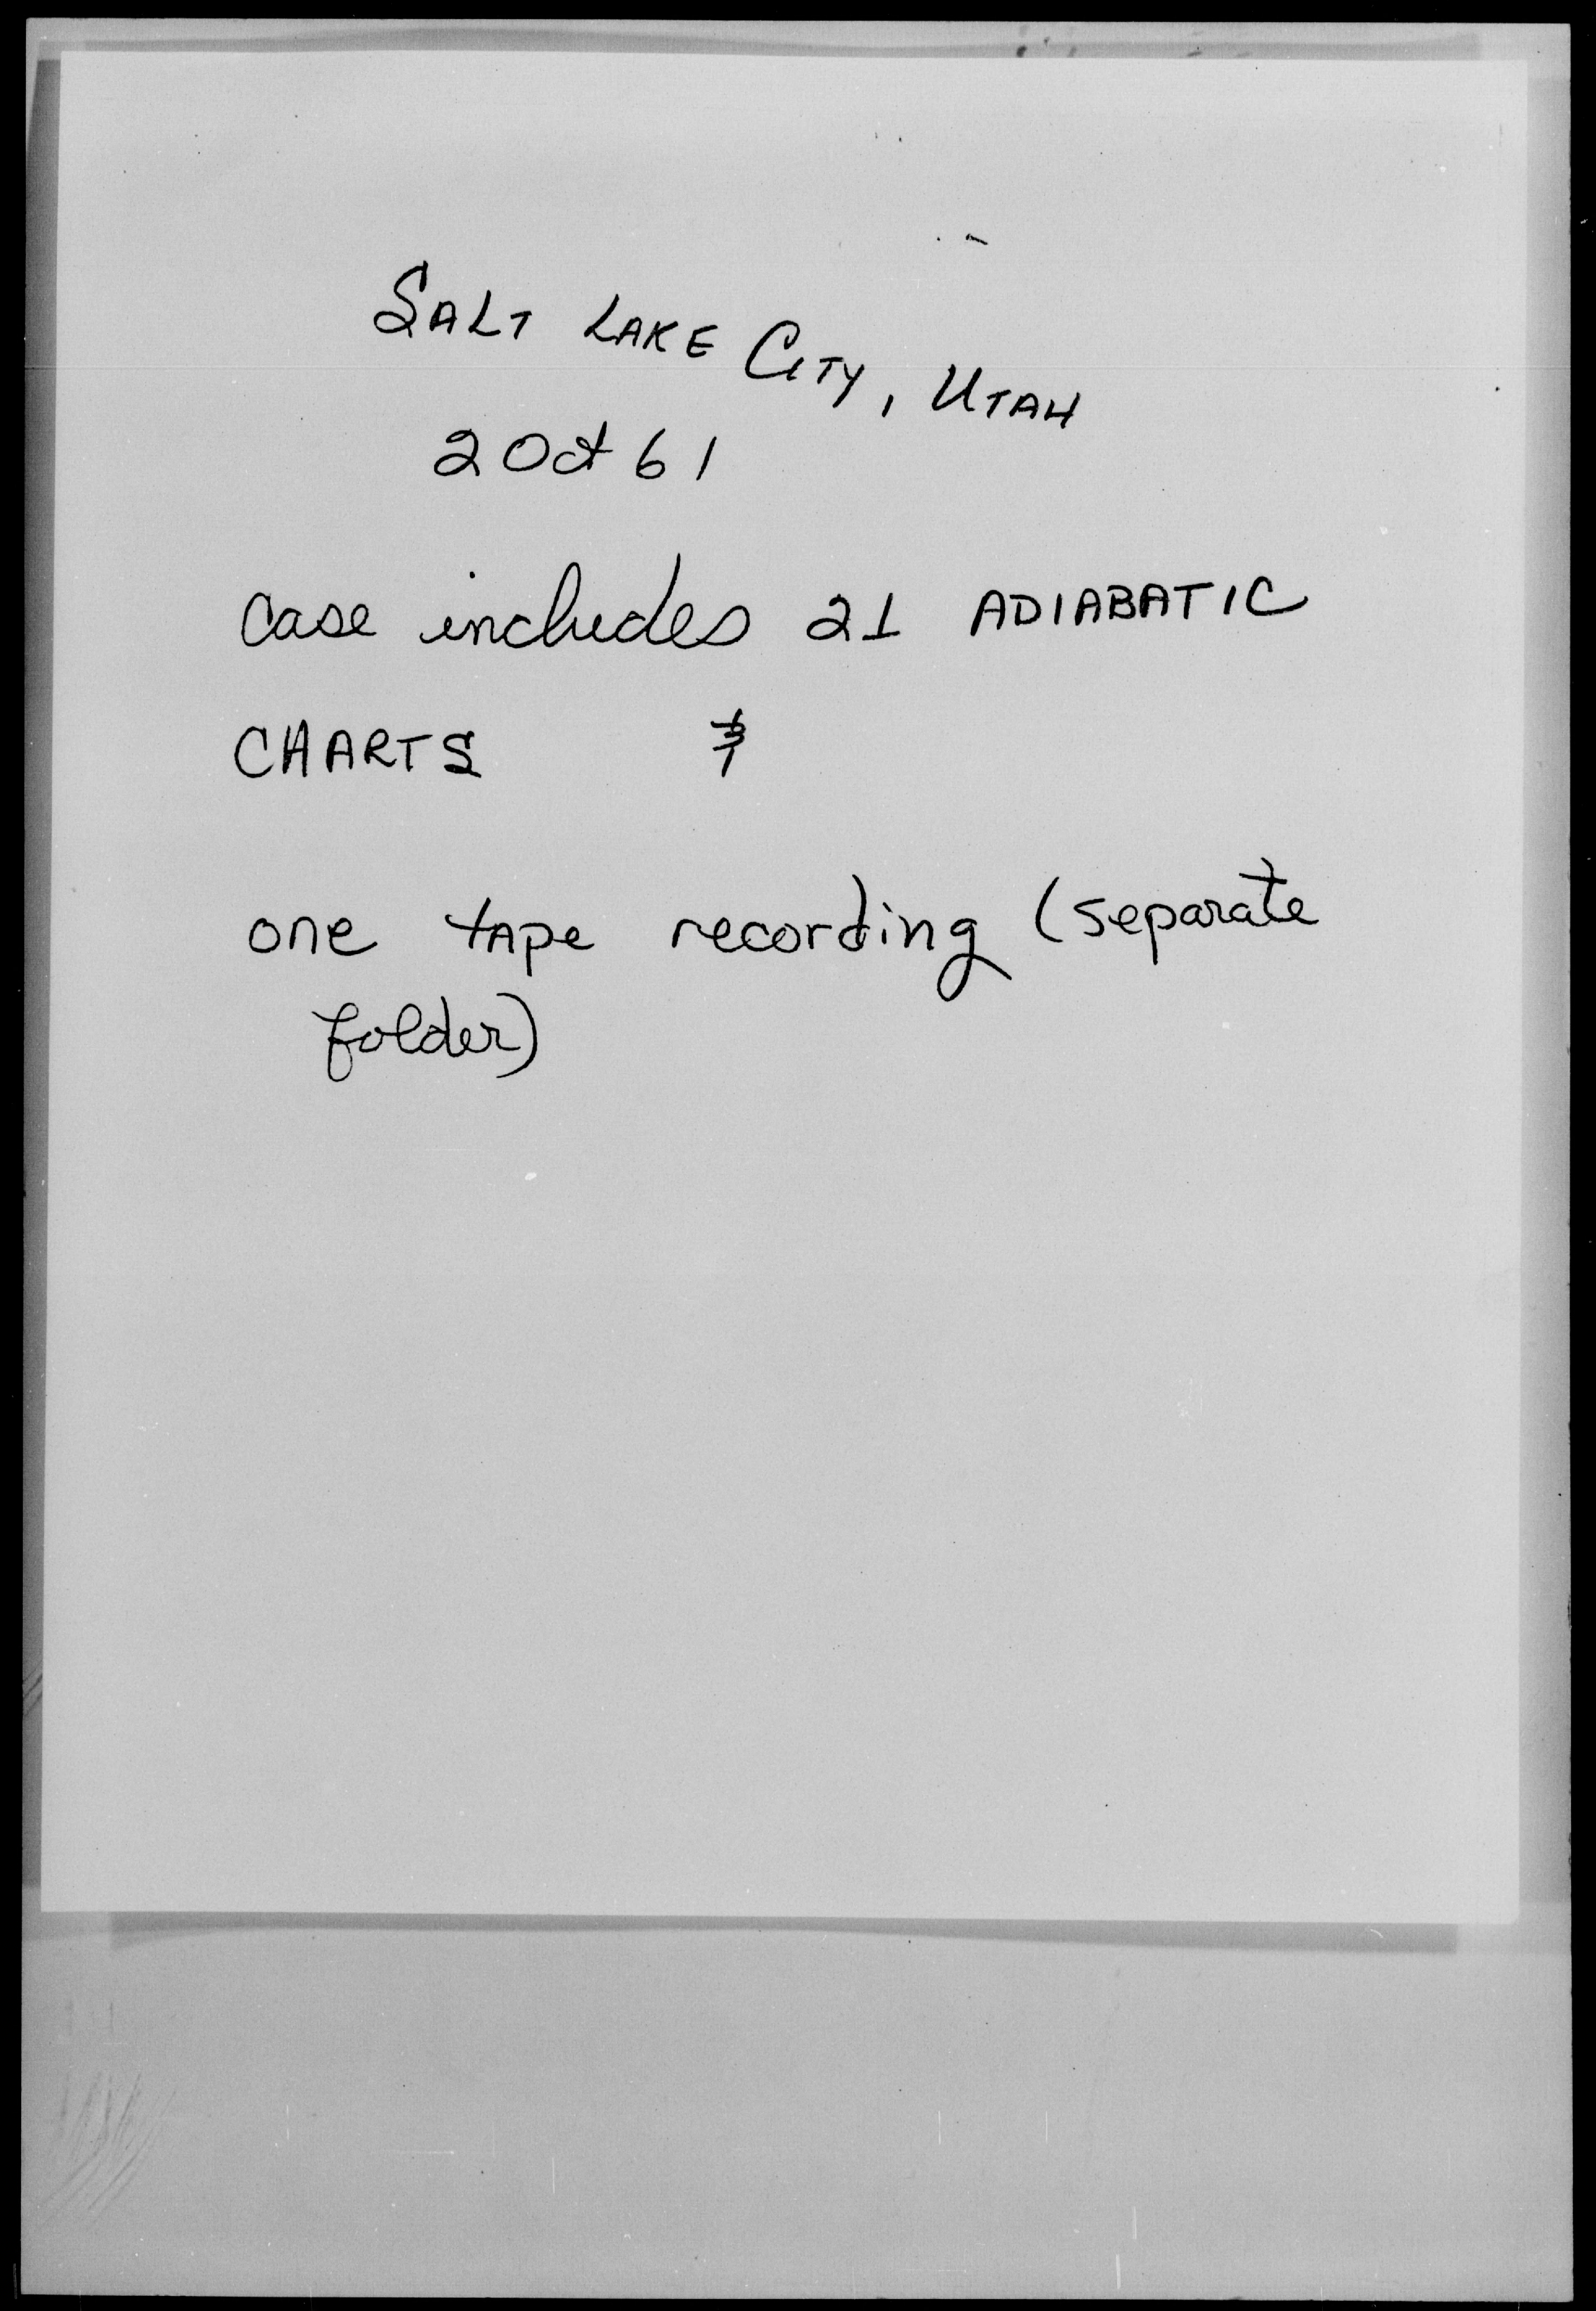 SALT LAKE CITY, UTAH
2 Oct 61
Case includes 21 ADIABATIC
CHARTS &
one tape recording (separate
folder)